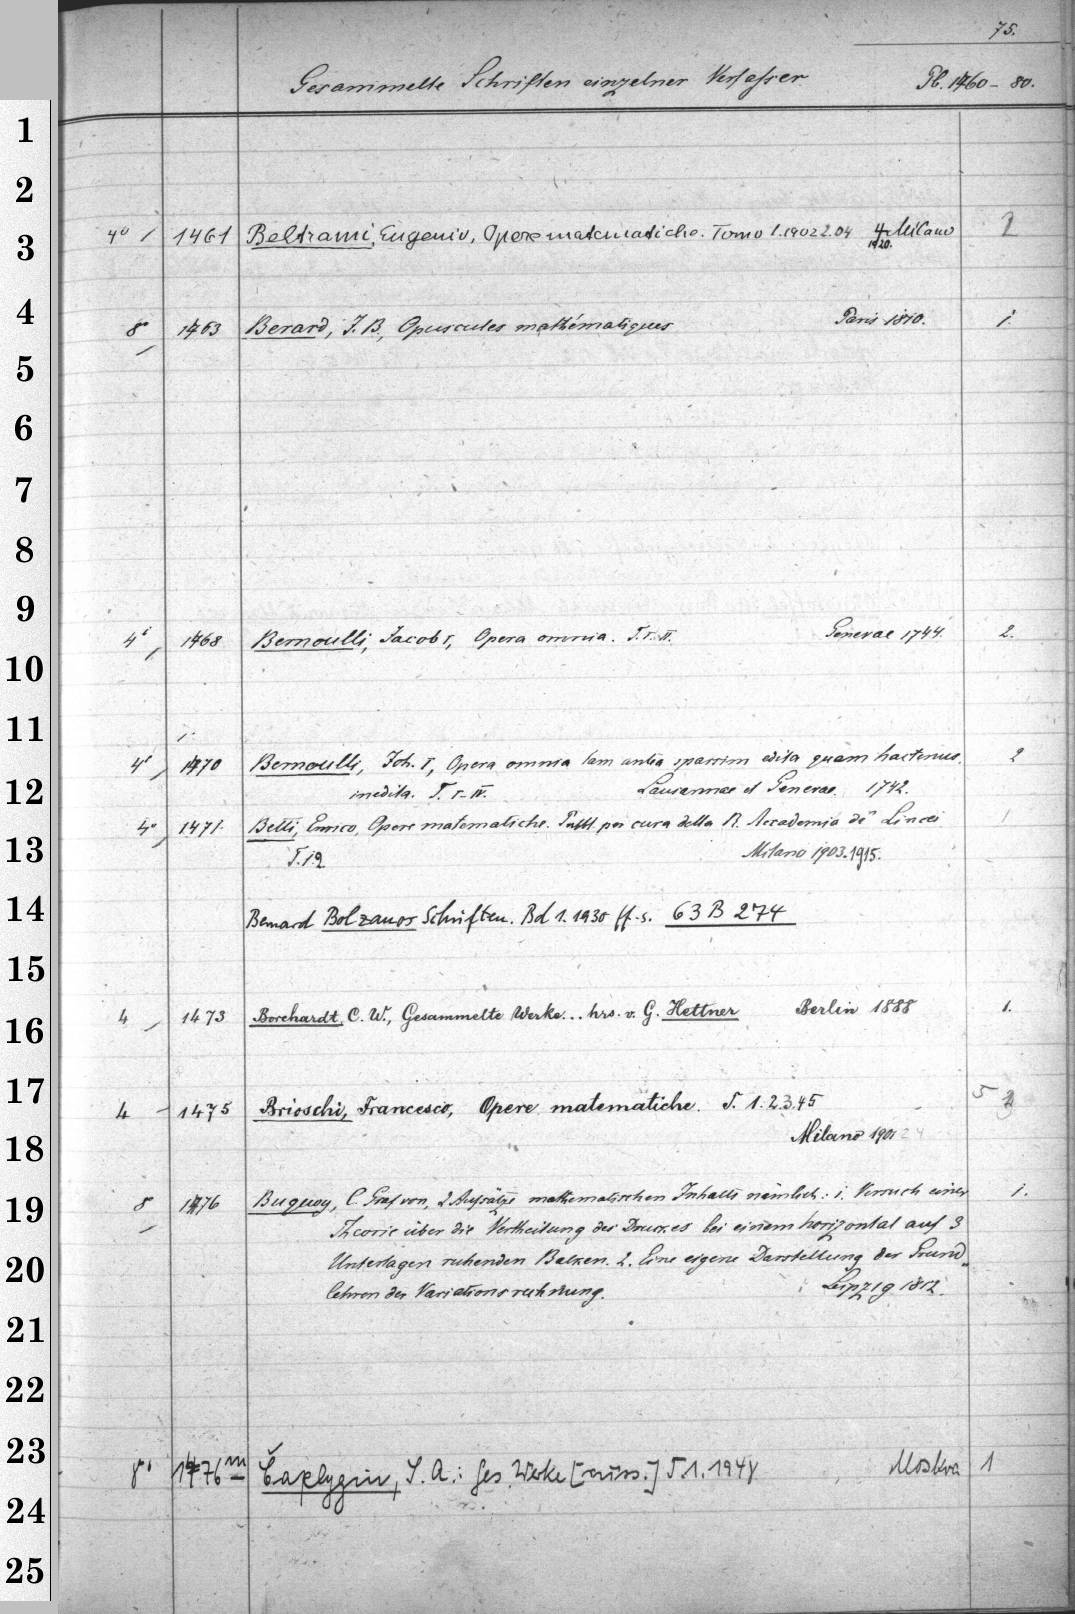 75.
Gesammelte Schriften einzelner Verfasser Pl. 1460-80.
1
2
3 4° / 1461 Beltrami, Eugenio, Opere matematiche. Tomo 1.1902 2.04 4 Milano 2
1920.
4 8° 1463 Berard, J. B., Opuscules mathématiques Paris 1810. 1.
5
6
7
8
9
10 4° 1468 Bernoulli, Jacob I, Opera omnia. T. I-II. Genevae 1744. 2.
11
4° 1470 Bernoulli, Joh. I, Opera omnia tam antea sparsim edita quam hactenus 2
12 inedita. T. I-IV. Lausannae et Genevae. 1742.
4° 1471. Betti, Enrico, Opere matematiche. Publ. per cura della R. Accademia de' Lincei 1
13 T. 1.2 Milano 1903.1915.
14 Bernard Bolzanos Schriften. Bd 1. 1930 ff. s. 63 B 274
15
16 4 1473 Borchardt, C. W., Gesammelte Werke... hrs. v. G. Hettner Berlin 1888 1.
17 4 - 1475 Brioschi, Francesco, Opere matematiche. T. 1.2.3.45 5
18 Milano 1901
19 8 1476 Buquoy, C. Graf von, 2 Aufsätze mathematischen Inhalts nämlich: 1. Versuch einer 1.
Theorie über die Vertheilung des Druckes bei einem horizontal auf 3
20 Unterlagen ruhenden Balken. 2. Eine eigene Darstellung der Grund„
lehren der Variationsrechnung. Leipzig 1812.
21
22
23 8° 1476m Čaplygin, S. A.: Ges. Werke [russ.] T. 1. 1948 Moskva 1
24
25